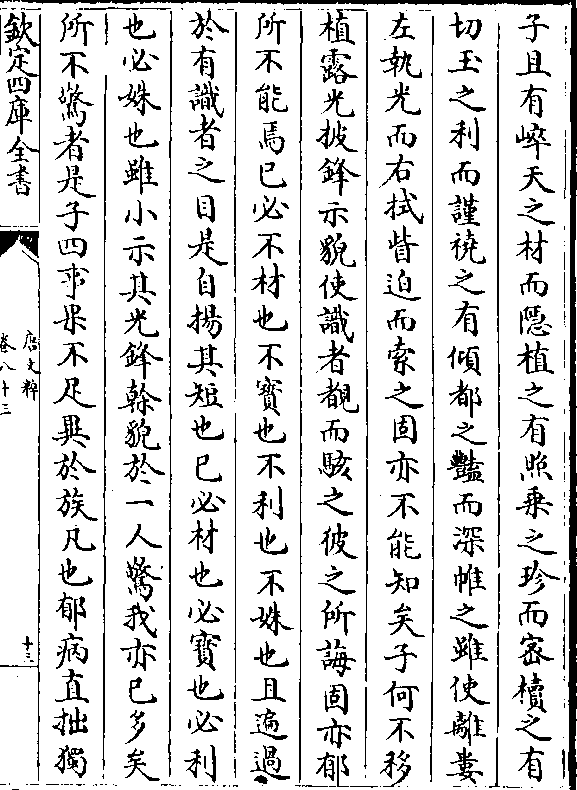 子且有崪天之材而隱植之有照乗之珍而宻櫝之有
切玉之利而謹襓之有傾都之豔而深帷之雖使離婁
左執光而右拭眥迫而索之固亦不能知矣子何不移
植露光披鋒示貌使識者覩而駭之彼之所誨固亦郁
所不能焉已必不材也不寳也不利也不姝也且遍過
於有識者之目是自揚其短也已必材也必寳也必利
也必姝也雖小示其光鋒榦貌於一人驚我亦已多矣
所不驚者是子四事果不足異於族凡也郁病直拙獨
欽定四庫全書
唐文粹
卷八十三
十三